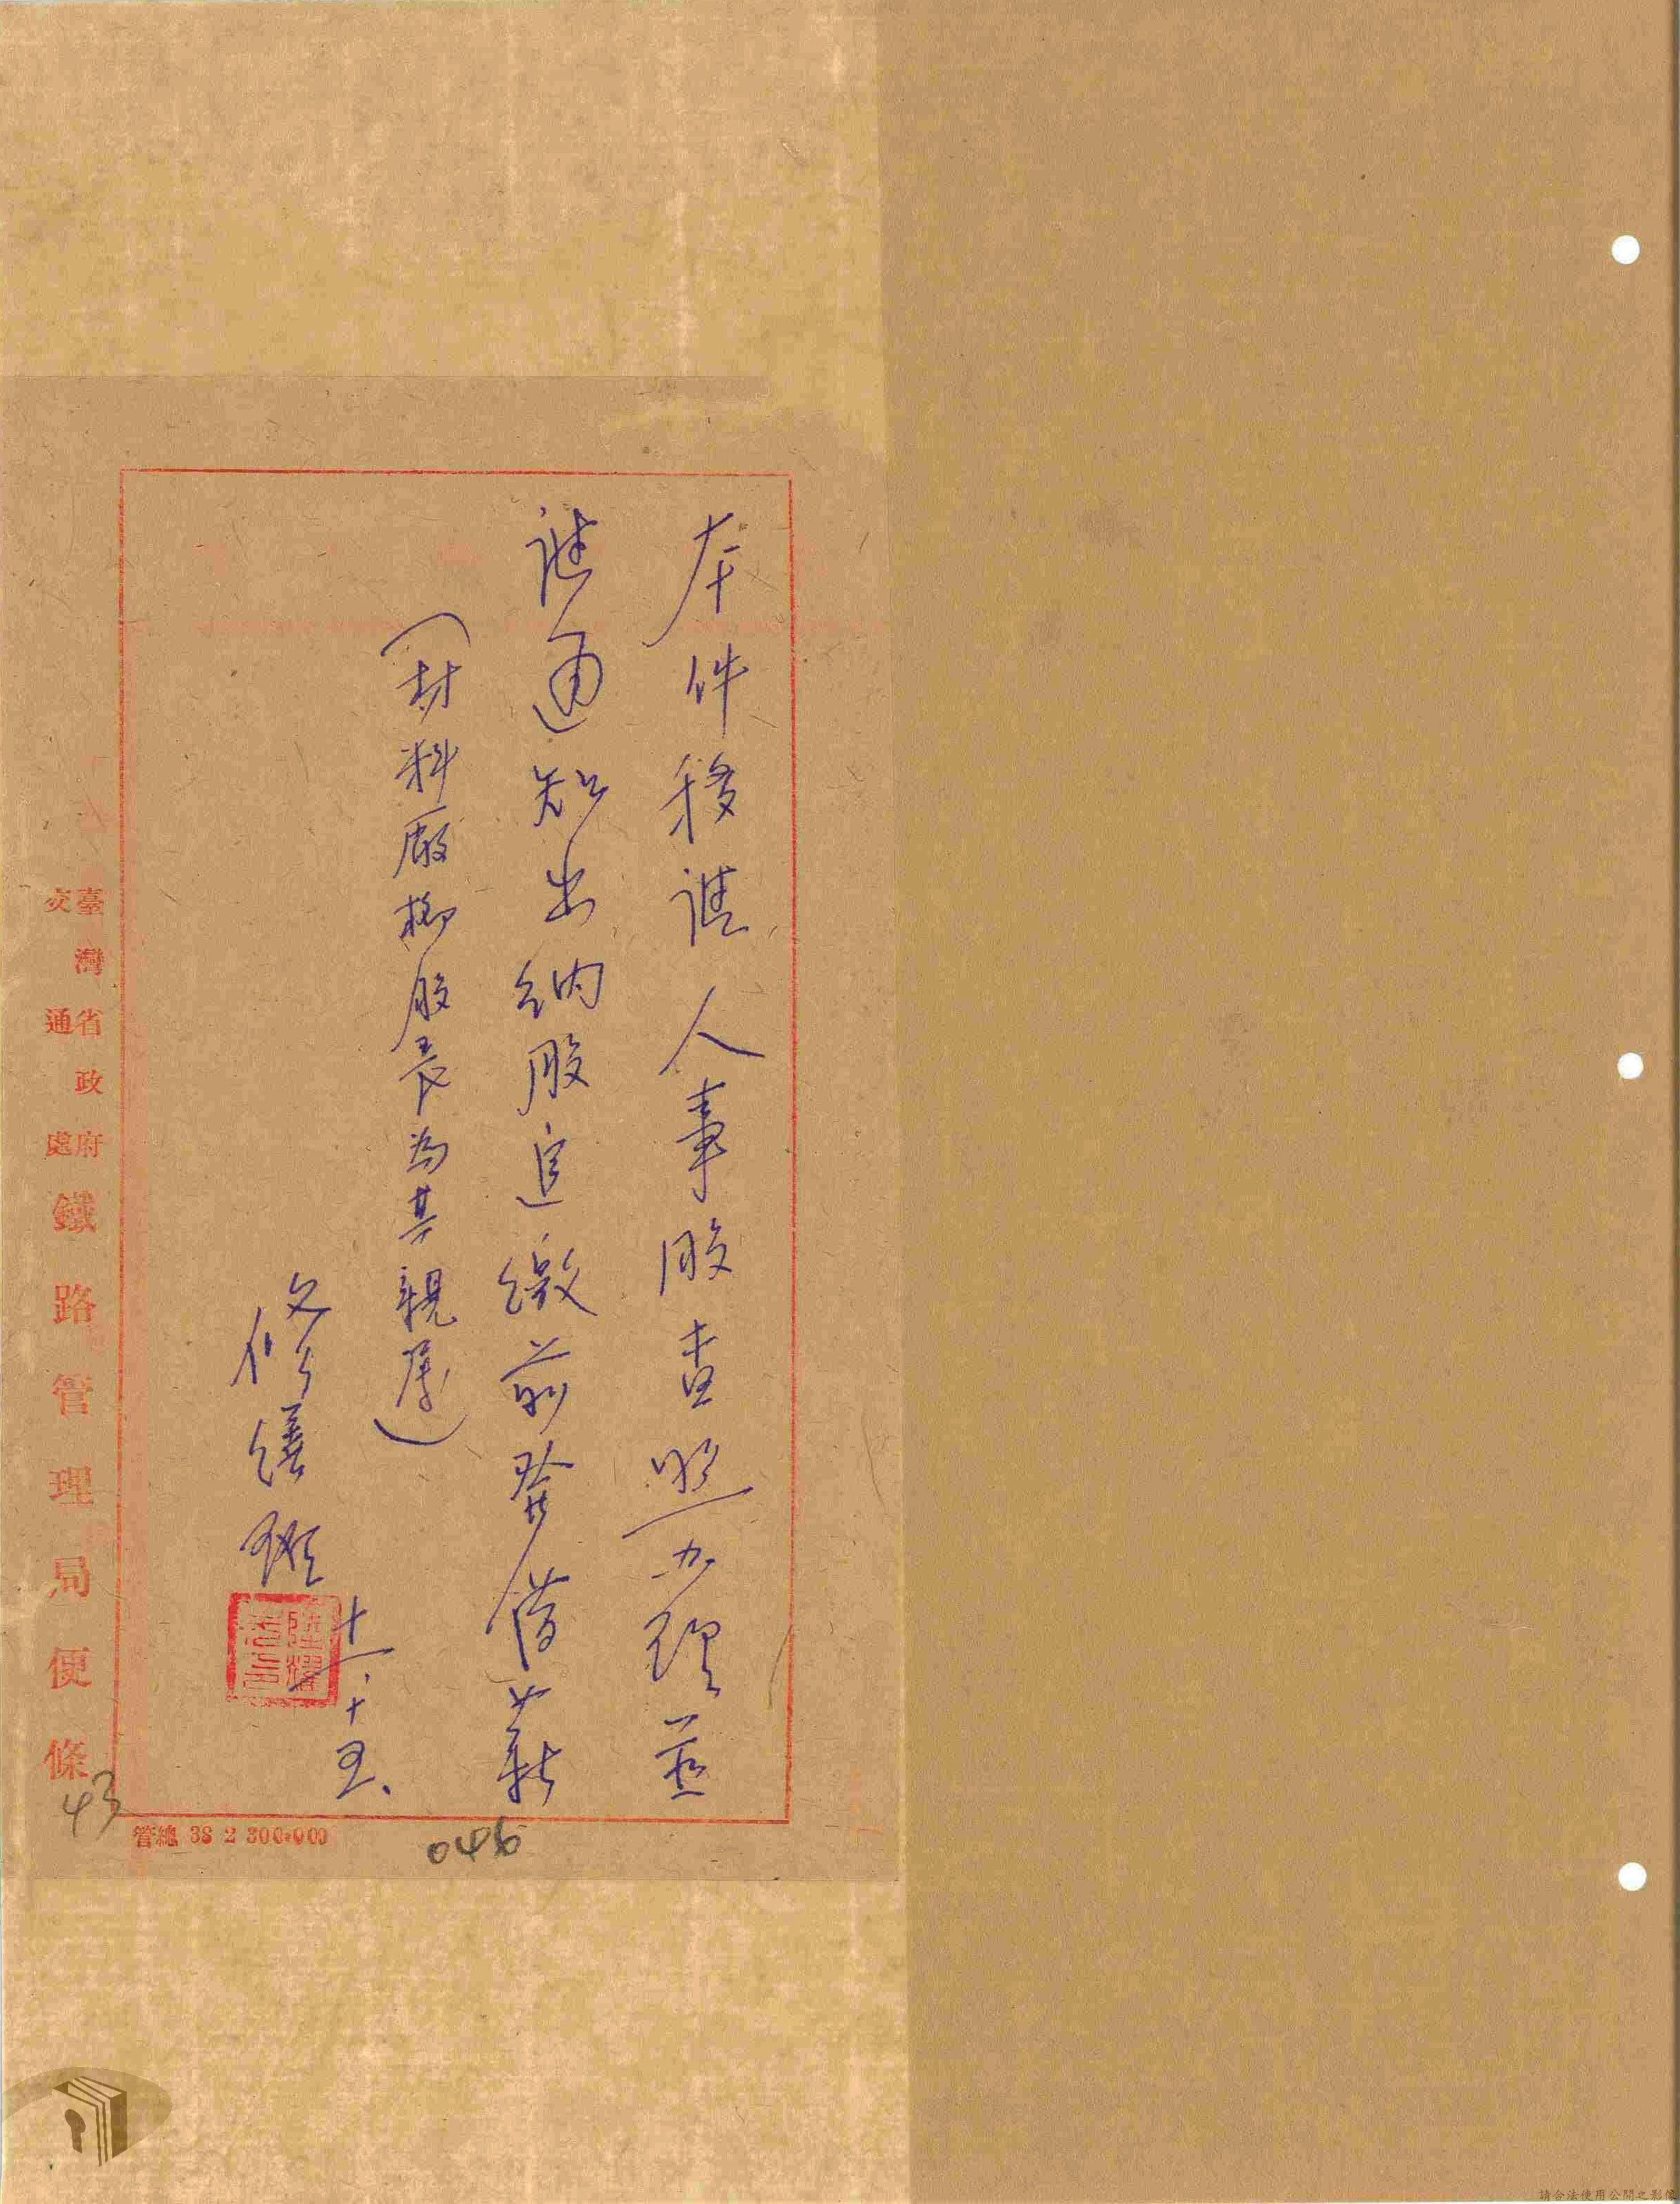 本件移請人事股查照办理並
請通知出納股追繳前發借薪
(材料廠柳股長為其親屬)
修繕班
十一.十五、
臺灣省政府
交通處
鐵路管理局便條
管總 38 2 300.000
43
046
請合法使用公開之影像